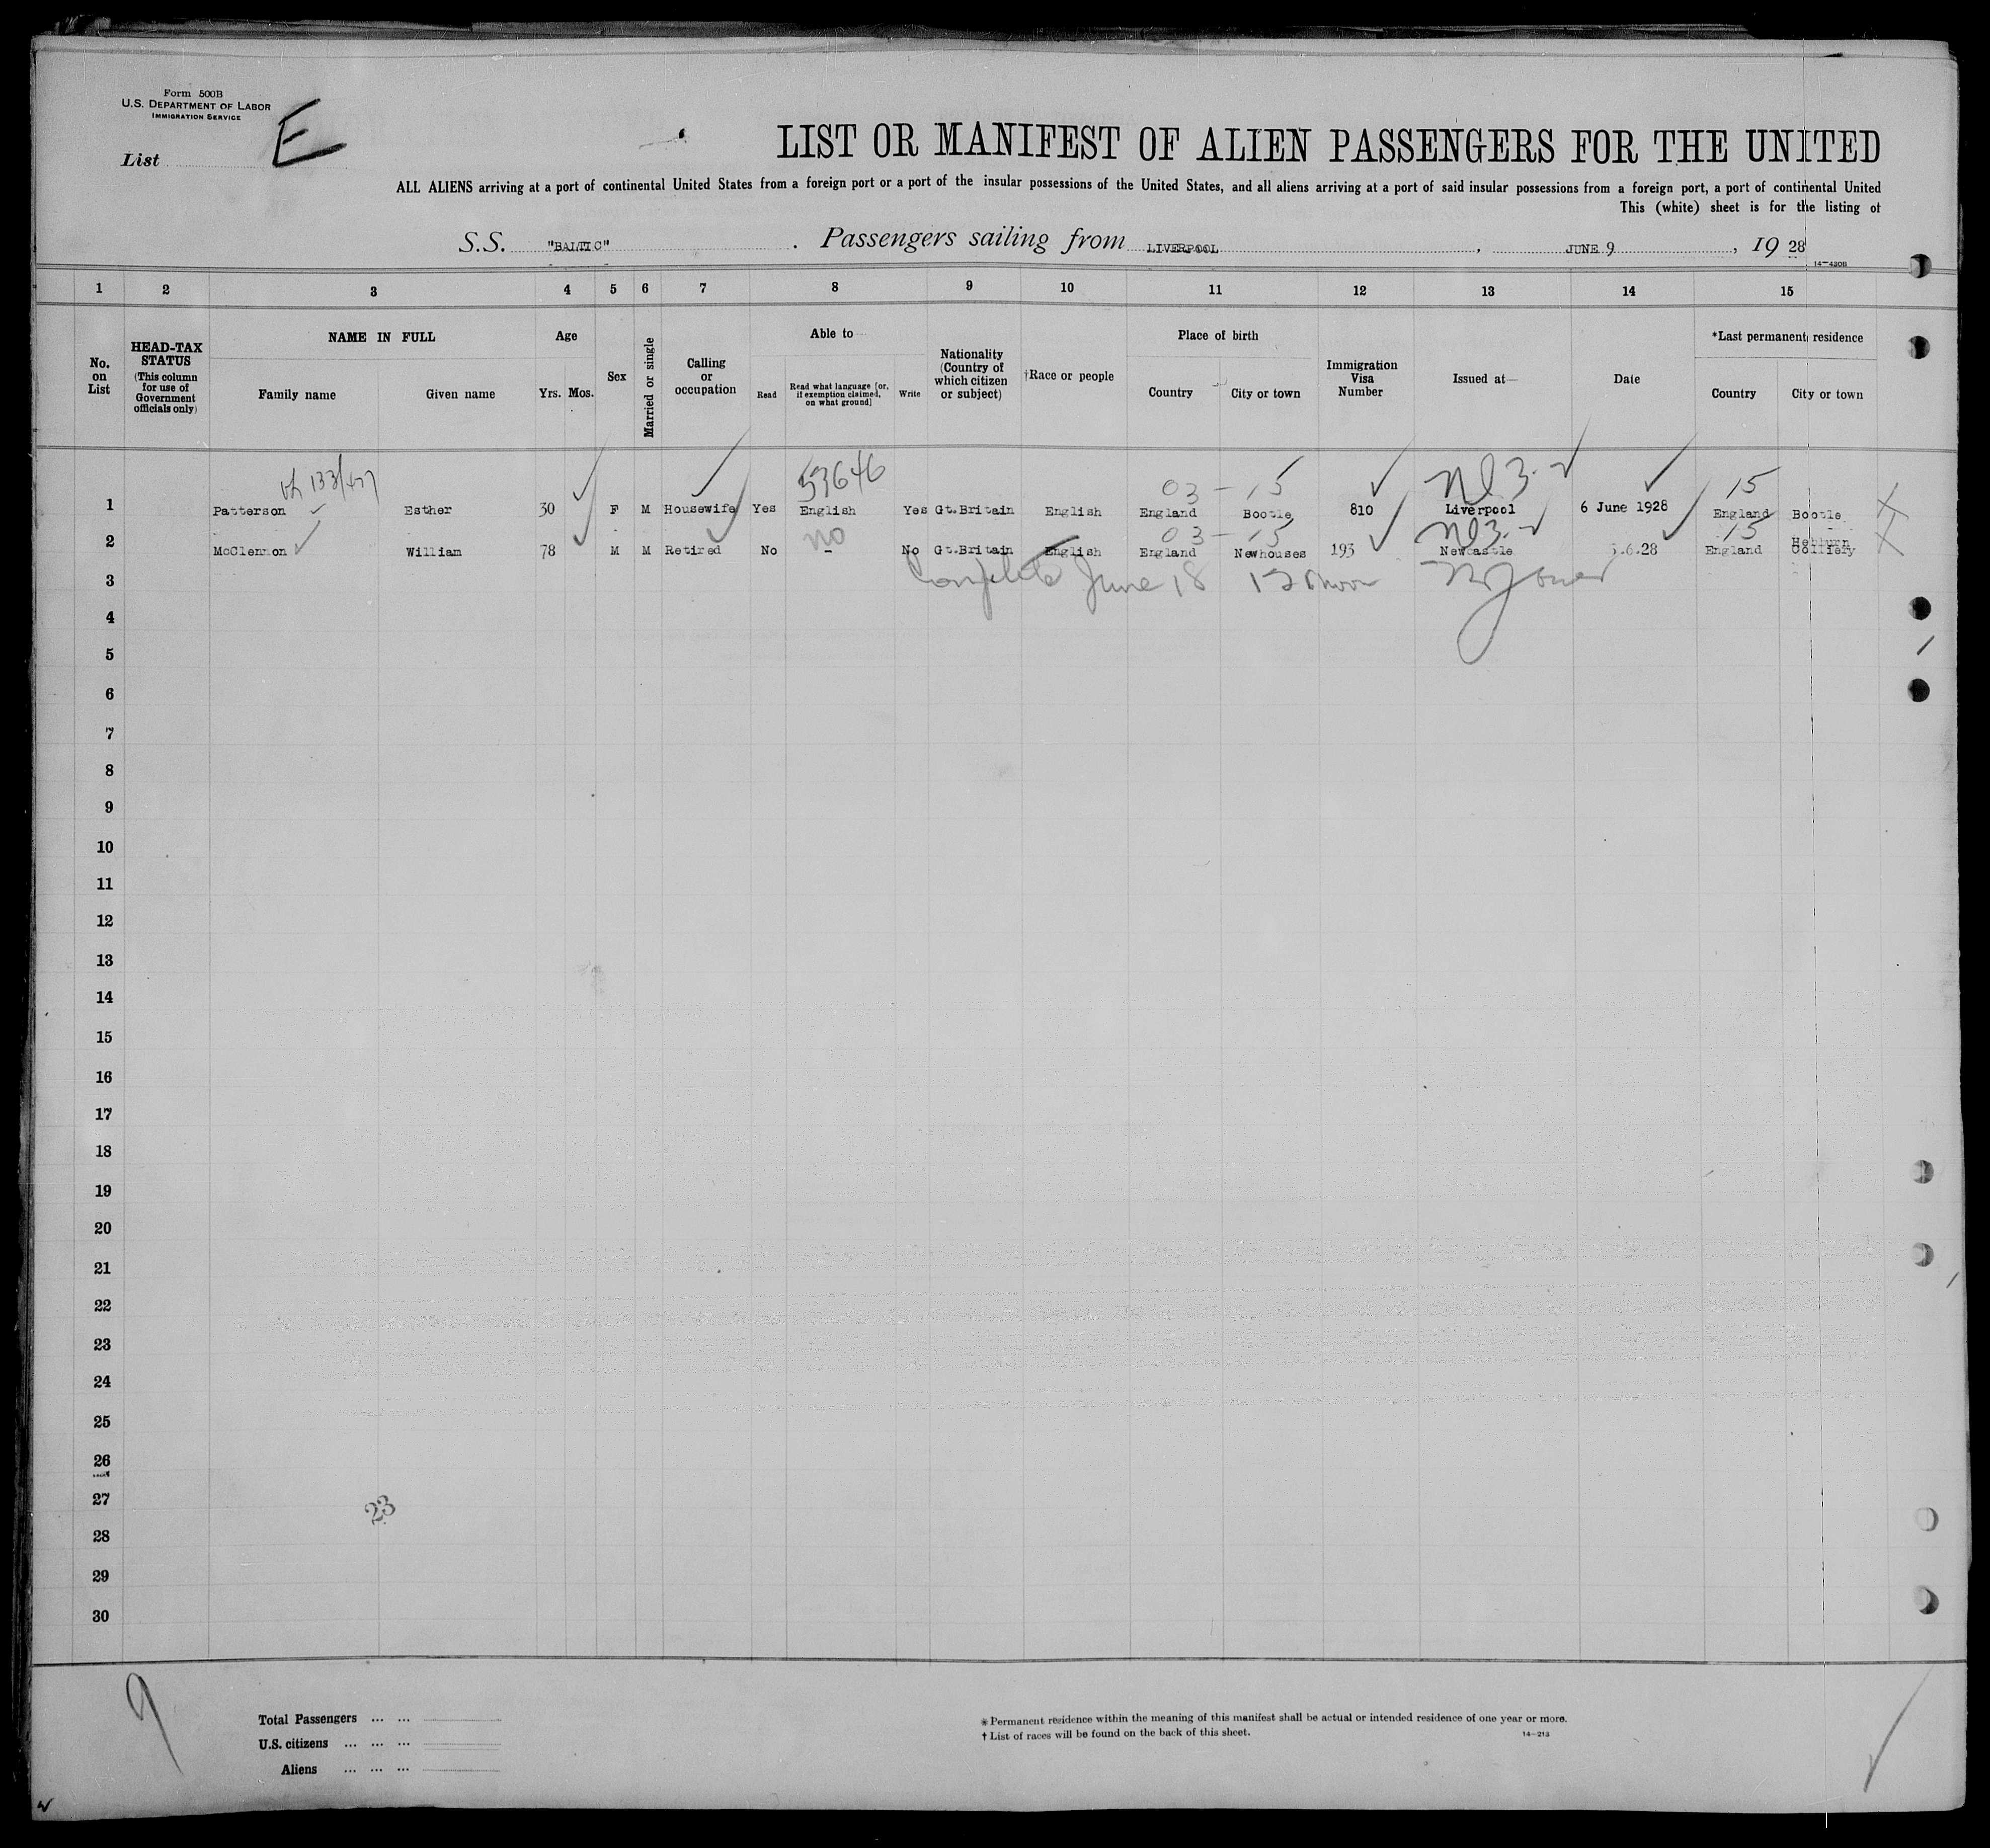 Form 500B
U.S. DEPARTMENT OF LABOR
IMMIGRATION SERVICE
List E
LIST OR MANIFEST OF ALIEN PASSENGERS FOR THE UNITED
ALL ALIENS arriving at a port of continental United States from a foreign port or a port of the insular possessions of the United States, and all aliens arriving at a port of said insular possessions from a foreign port, a port of continental United
This (white) sheet is for the listing of
S.S. "BALTIC" . Passengers sailing from LIVERPOOL , JUNE 9 , 19 28
14-430B
1 2 3 4 5 6 7 8 9 10 11 12 13 14 15
No. on List
HEAD-TAX STATUS (This column for use of Government officials only)
NAME IN FULL
Family name
Given name
Age
Yrs. Mos.
Sex
Married or single
Calling or occupation
Able to
Read
Read what language [or, if exemption claimed, on what ground]
Write
Nationality (Country of which citizen or subject)
†Race or people
Place of birth
Country
City or town
Immigration Visa Number
Issued at—
Date
*Last permanent residence
Country
City or town
53646 03 - 15 15
1 Patterson Esther 30 F M Housewife Yes English Yes Gt.Britain English England Bootle 810 Liverpool 6 June 1928 England Bootle
no 03 - 15 15
2 McClennon William 78 M M Retired No - No Gt.Britain English England Newhouses 193 Newcastle 5.6.28 England Hebburn Colliery
3 Complete June 18 12
4
5
6
7
8
9
10
11
12
13
14
15
16
17
18
19
20
21
22
23
24
25
26
27
23
28
29
30
Total Passengers ... ...
U.S. citizens ... ... ...
Aliens ... ... ...
* Permanent residence within the meaning of this manifest shall be actual or intended residence of one year or more.
† List of races will be found on the back of this sheet.
14-213